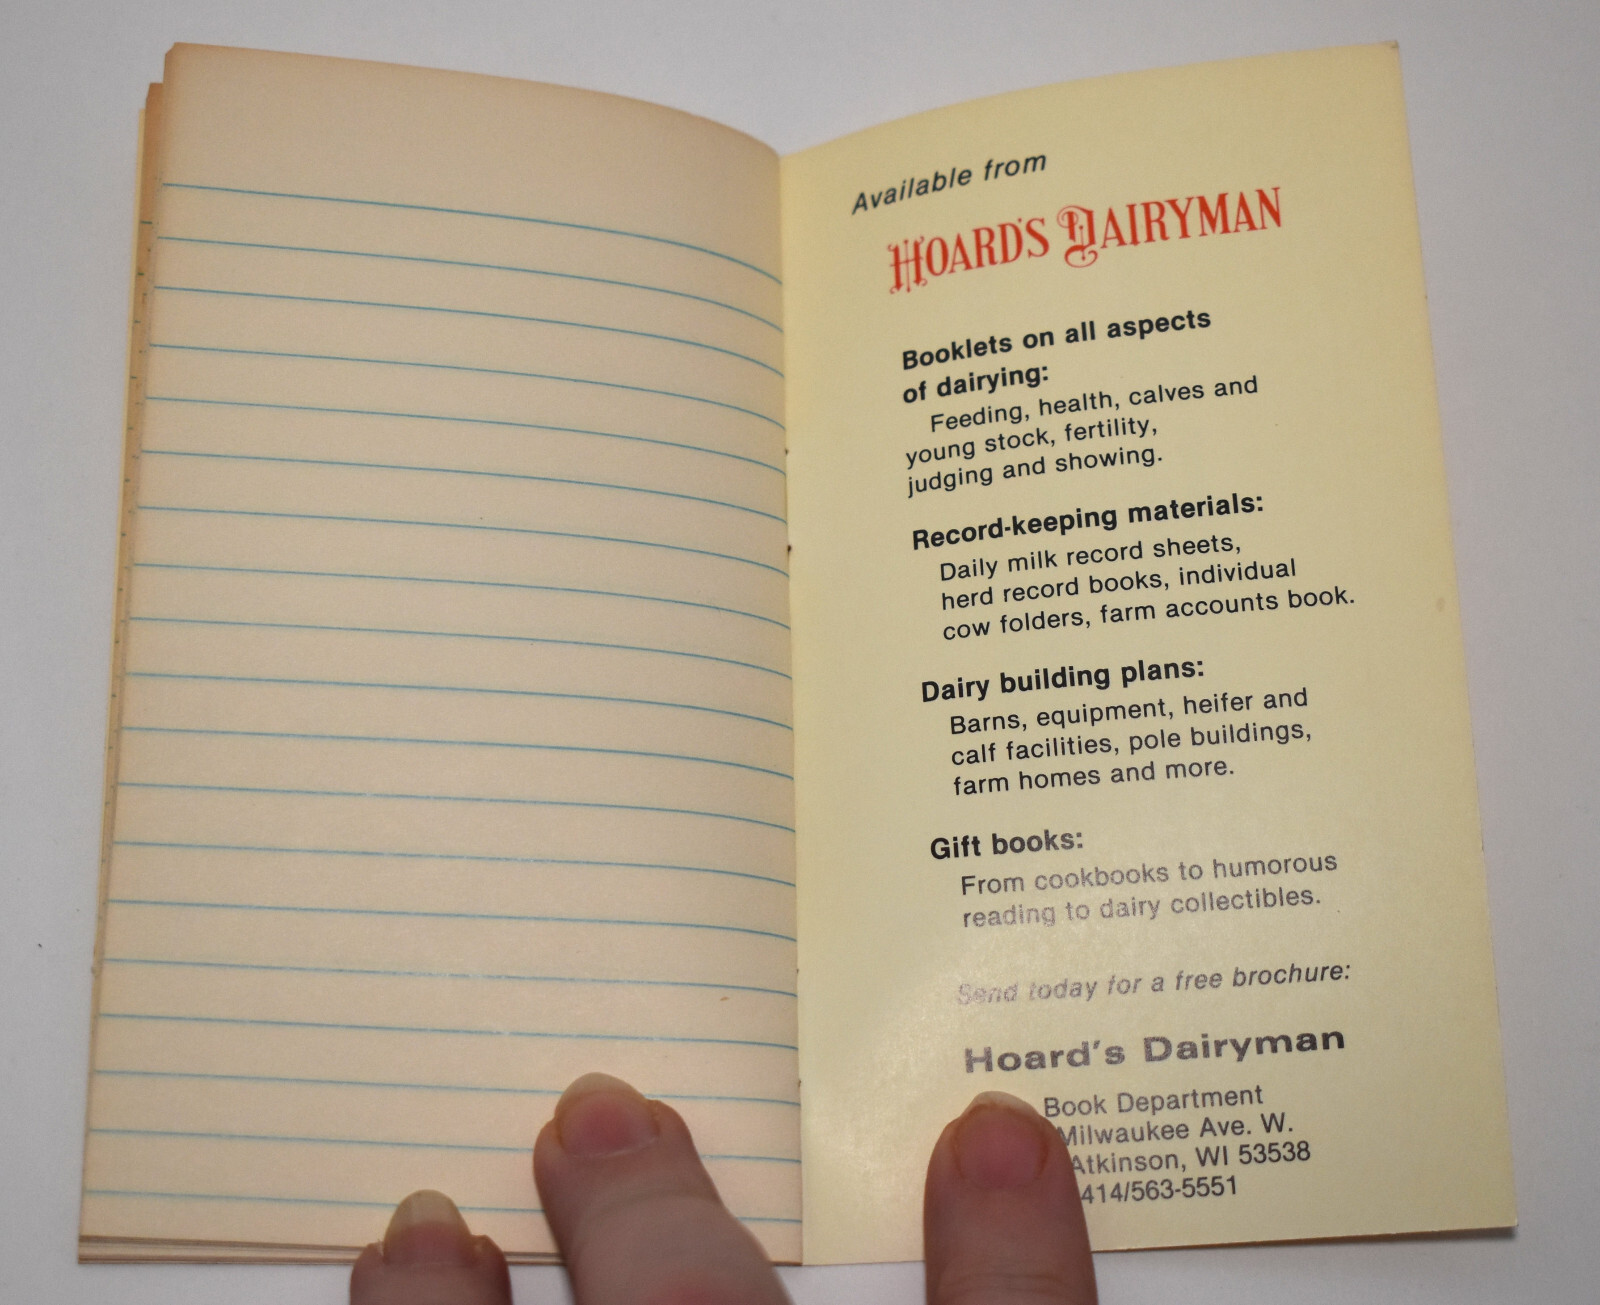 Available from
HOARD'S DAIRYMAN
Booklets on all aspects
of dairying:
Feeding, health, calves and
young stock, fertility,
judging and showing.
Record-keeping materials:
Daily milk record sheets,
herd record books, individual
cow folders, farm accounts book.
Dairy building plans:
Barns, equipment, heifer and
calf facilities, pole buildings,
farm homes and more.
Gift books:
From cookbooks to humorous
reading to dairy collectibles.
Send today for a free brochure:
Hoard's Dairyman
Book Department
Milwaukee Ave. W.
Atkinson, WI 53538
414/563-5551